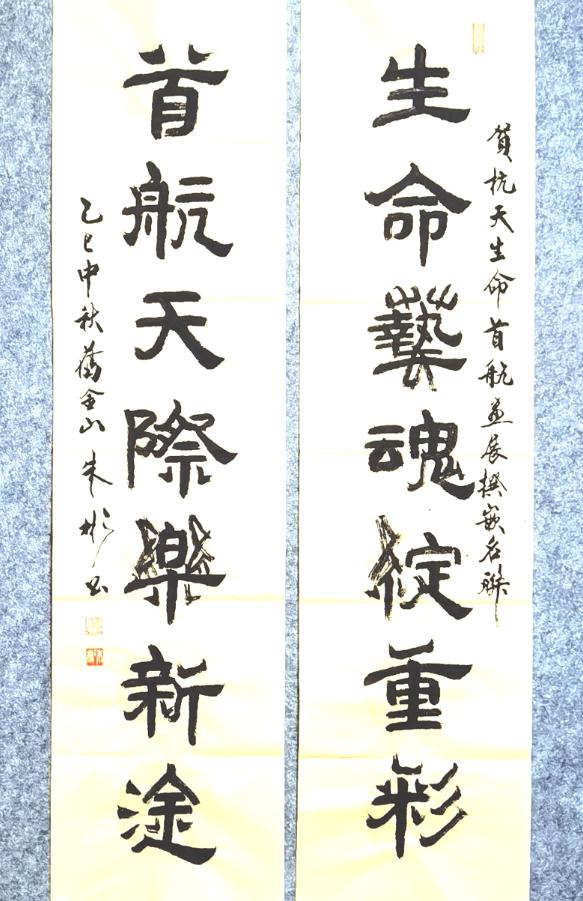 賀杭天生命首航畫展撰嵌名聯
生命藝魂綻重彩
首航天際樂新途
乙巳中秋舊金山朱彬书